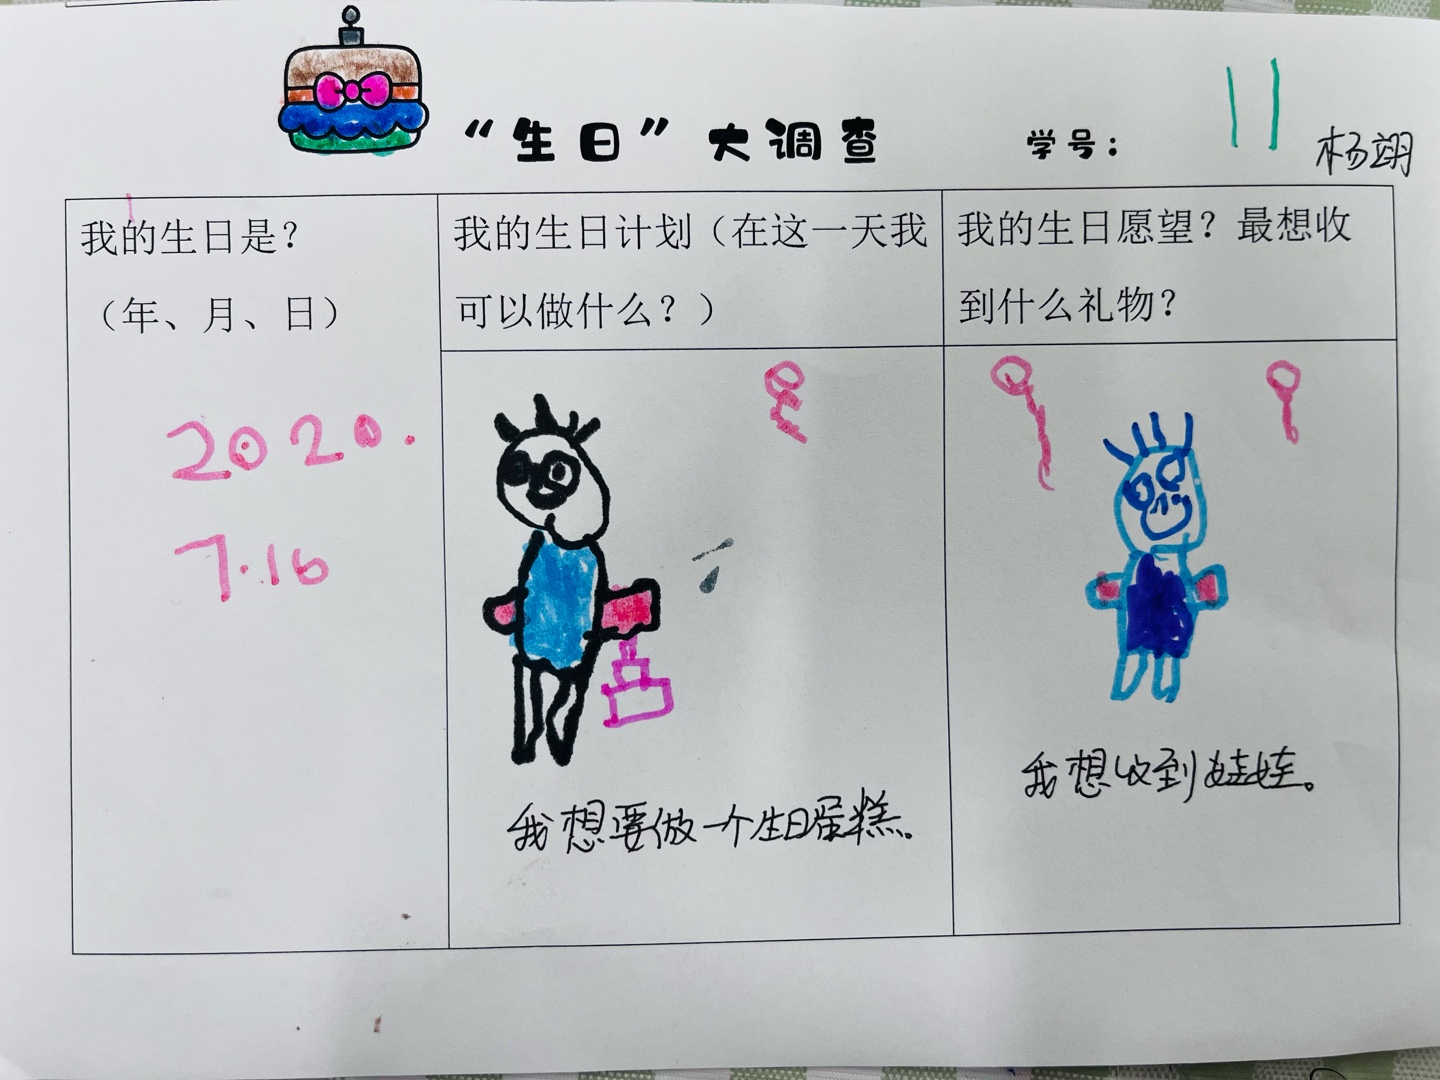 “生日”大调查
学号：
11
杨翊
我的生日是？
（年、月、日）
2020.
7.16
我的生日计划（在这一天我
可以做什么？）
我想要做一个生日蛋糕。
我的生日愿望？最想收
到什么礼物？
我想收到娃娃。